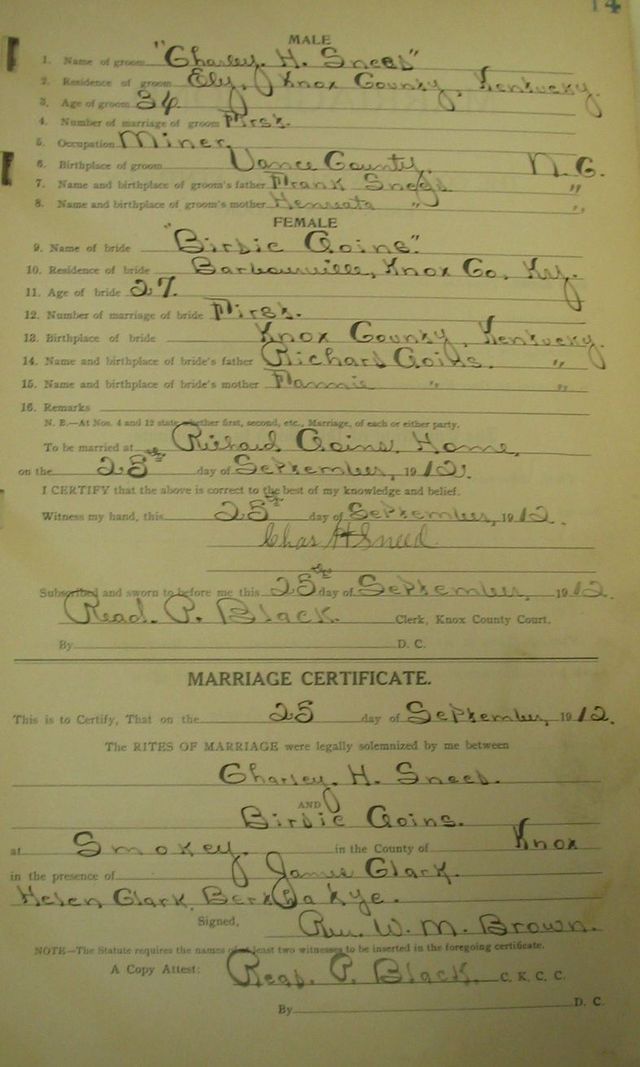 14
MALE
1. Name of groom "Charley. H. Sneed"
2. Residence of groom Ely, Knox County, Kentucky.
3. Age of groom 34
4. Number of marriage of groom First.
5. Occupation Miner
6. Birthplace of groom Vance County. N. C.
7. Name and birthplace of groom's father Frank Sneed "
8. Name and birthplace of groom's mother " "
FEMALE
9. Name of bride "Birdie Goins."
10. Residence of bride Barbourville, Knox Co, Ky.
11. Age of bride 27.
12. Number of marriage of bride First.
13. Birthplace of bride Knox County, Kentucky.
14. Name and birthplace of bride's father Richard Goins. "
15. Name and birthplace of bride's mother Fannie " "
16. Remarks
N. B.—At Nos. 4 and 12 state whether first, second, etc., Marriage, of each or either party.
To be married at Richard Goins, Home,
on the 25th day of September, 1912.
I CERTIFY that the above is correct to the best of my knowledge and belief.
Witness my hand, this 25th day of September, 1912.
Chas H Sneed
Subscribed and sworn to before me this 25th day of September, 1912.
Read. P. Black. Clerk, Knox County Court.
By D. C.
MARRIAGE CERTIFICATE.
This is to Certify, That on the 25 day of September, 1912.
The RITES OF MARRIAGE were legally solemnized by me between
Charley. H. Sneed.
AND
Birdie Goins.
at Smokey. in the County of Knox
in the presence of James Clark.
Helen Clark, Bertha Kye.
Signed, Rev. W. M. Brown.
NOTE—The Statute requires the names of at least two witnesses to be inserted in the foregoing certificate.
A Copy Attest: Read. P. Black. C. K. C. C.
By D. C.